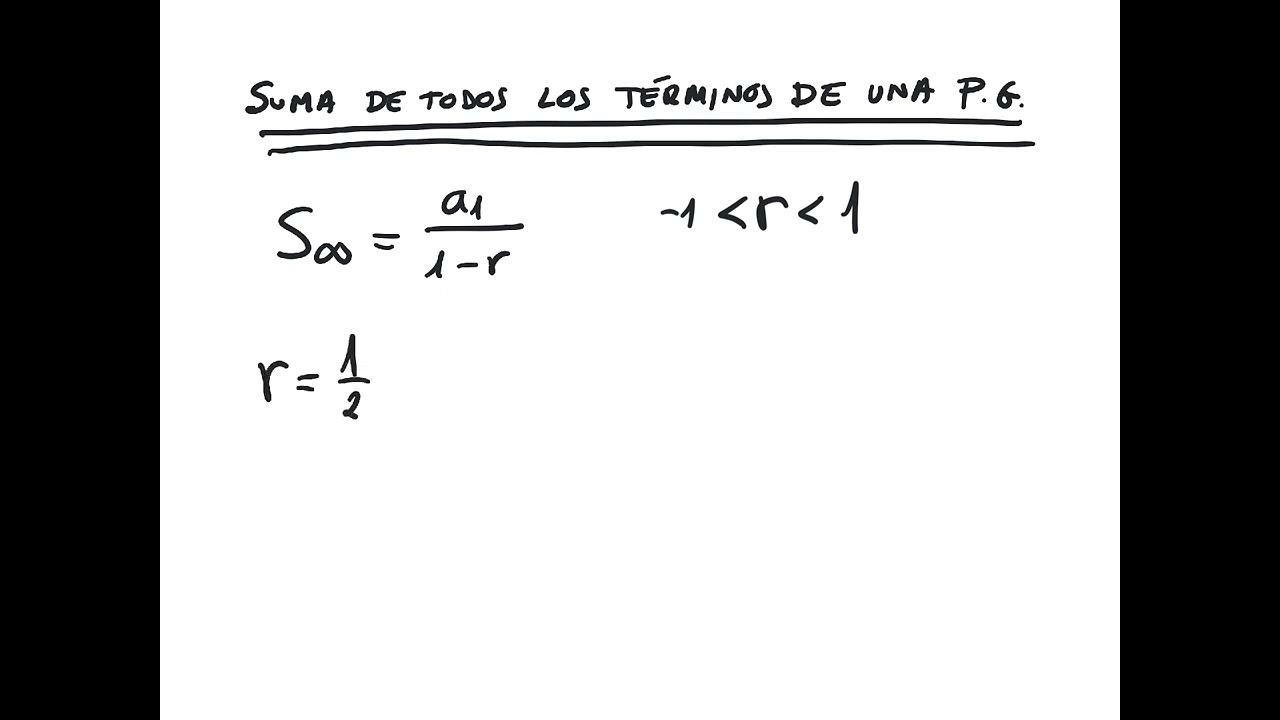 SUMA DE TODOS LOS TÉRMINOS DE UNA P.G.
S∞ = a1/(1-r) -1 < r < 1
r = 1/2